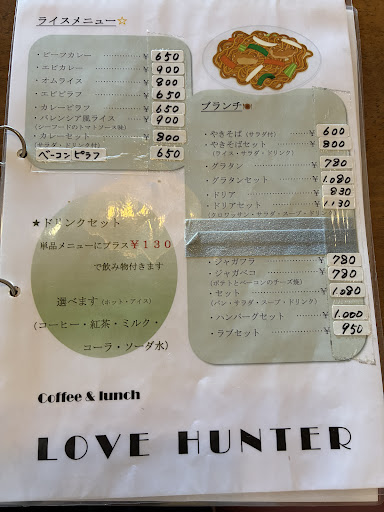 ライスメニュー☆
・ビーフカレー ¥ 650
・エビカレー ¥ 900
・オムライス ¥ 800
・エビピラフ ¥ 650
・カレーピラフ ¥ 650
・バレンシア風ライス ¥ 900
(シーフードのトマトソース味)
・カレーセット ¥ 800
(サラダ・ドリンク付)
ベーコンピラフ 650
ブランチ
・やきそば (サラダ付) ¥ 600
・やきそばセット ¥ 800
(ライス・サラダ・ドリンク)
・グラタン ¥ 780
・グラタンセット ¥ 1,080
・ドリア ¥ 830
・ドリアセット ¥ 1,130
(クロワッサン・サラダ・スープ・ドリンク)
・ジャガフラ ¥ 780
・ジャガベコ ¥ 780
(ポテトとベーコンのチーズ焼)
・セット ¥ 1,080
(パン・サラダ・スープ・ドリンク)
・ハンバーグセット ¥ 1,000
・ラブセット ¥ 950
★ドリンクセット
単品メニューにプラス¥130
で飲み物付きます
選べます (ホット・アイス)
(コーヒー・紅茶・ミルク・
コーラ・ソーダ水)
Coffee & lunch
LOVE HUNTER